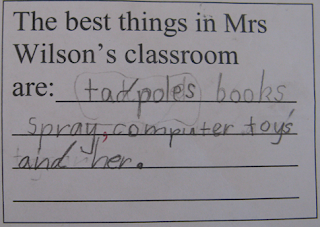 The best things in Mrs
Wilson's classroom
are: tadpole's books
spray, computer toy's
and her.